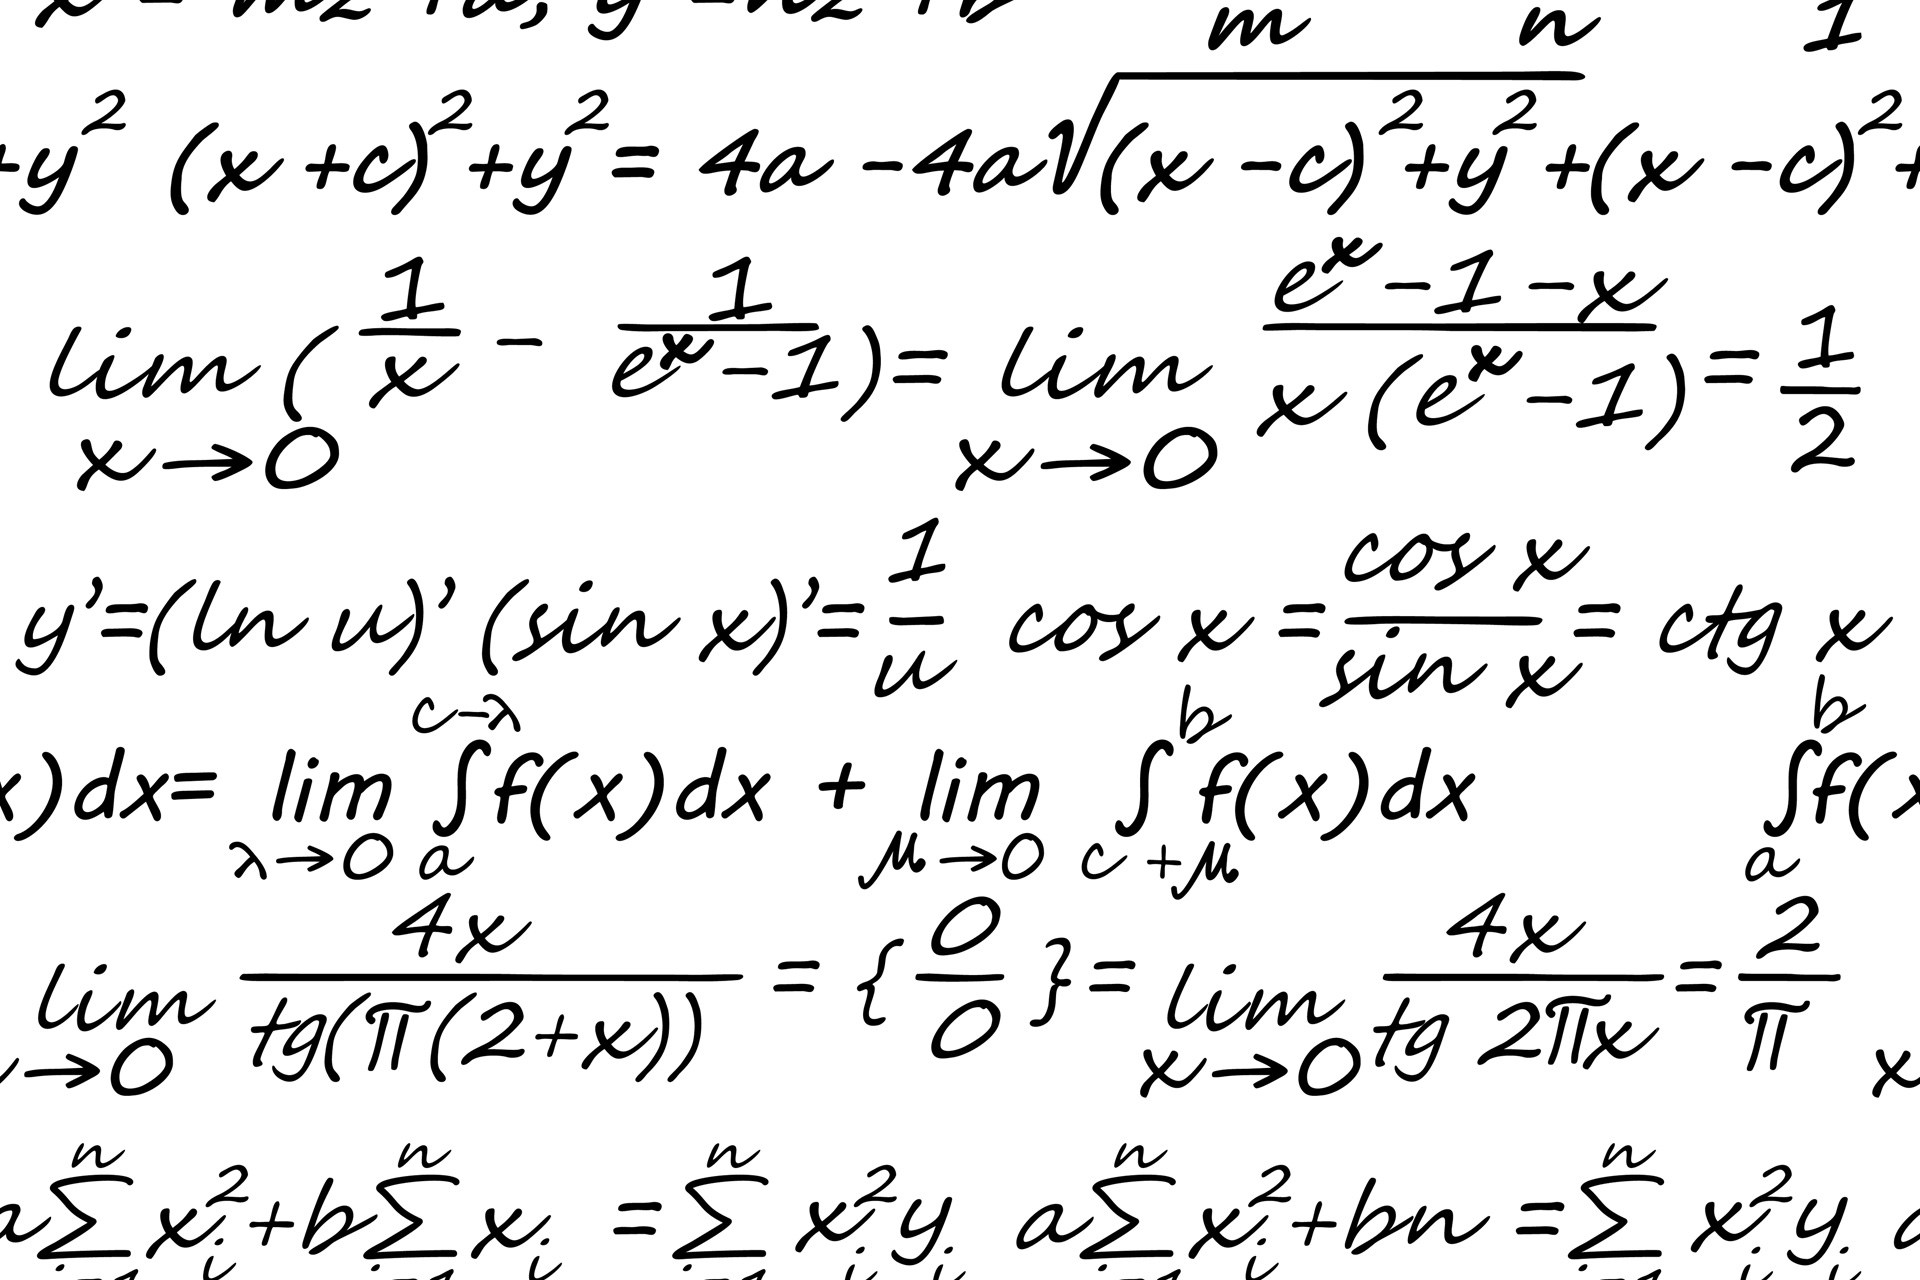 x = mz + a, y = nz + b m n 1
+y² (x + c)² + y² = 4a − 4a√((x − c)² + y²) + (x − c)² +
lim x→0 (1/x − 1/(eˣ − 1)) = lim x→0 (eˣ − 1 − x)/(x(eˣ − 1)) = 1/2
y’=(ln u)’ (sin x)’= 1/u cos x = cos x/sin x = ctg x
x)dx = lim λ→0 ∫ₐ^(c−λ) f(x)dx + lim μ→0 ∫_(c+μ)^b f(x)dx ∫ₐ^b f(x
→0 lim 4x/tg(π(2+x)) = {0/0} = lim x→0 4x/tg 2πx = 2/π x
a∑ⁿ i=1 xᵢ² + b∑ⁿ i=1 xᵢ = ∑ⁿ i=1 xᵢ²yᵢ a∑ⁿ i=1 xᵢ² + bn = ∑ⁿ i=1 xᵢ²yᵢ a